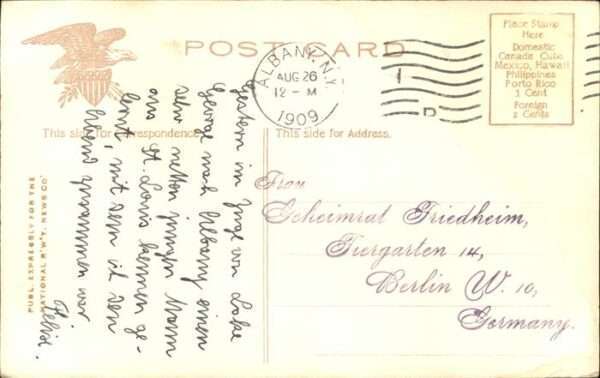 POST CARD
ALBANY, N.Y.
AUG 26
12 - M
1909
1
D
Place Stamp
Here
Domestic
Canada Cuba
Mexico, Hawaii
Philippines
Porto Rico
1 Cent
Foreign
2 Cents
This side for Correspondence.
This side for Address.
PUBL. EXPRESSLY FOR THE
NATIONAL R'W'Y. NEWS CO.
Gestern im Zuge von Lake
George nach Albany einen
sehr netten jungen Mann
aus St. Louis kennen ge-
lernt, mit dem ich den
Abend zusammen war
Felix.
Frau
Geheimrat Friedheim,
Tiergarten 14,
Berlin W. 10,
Germany.